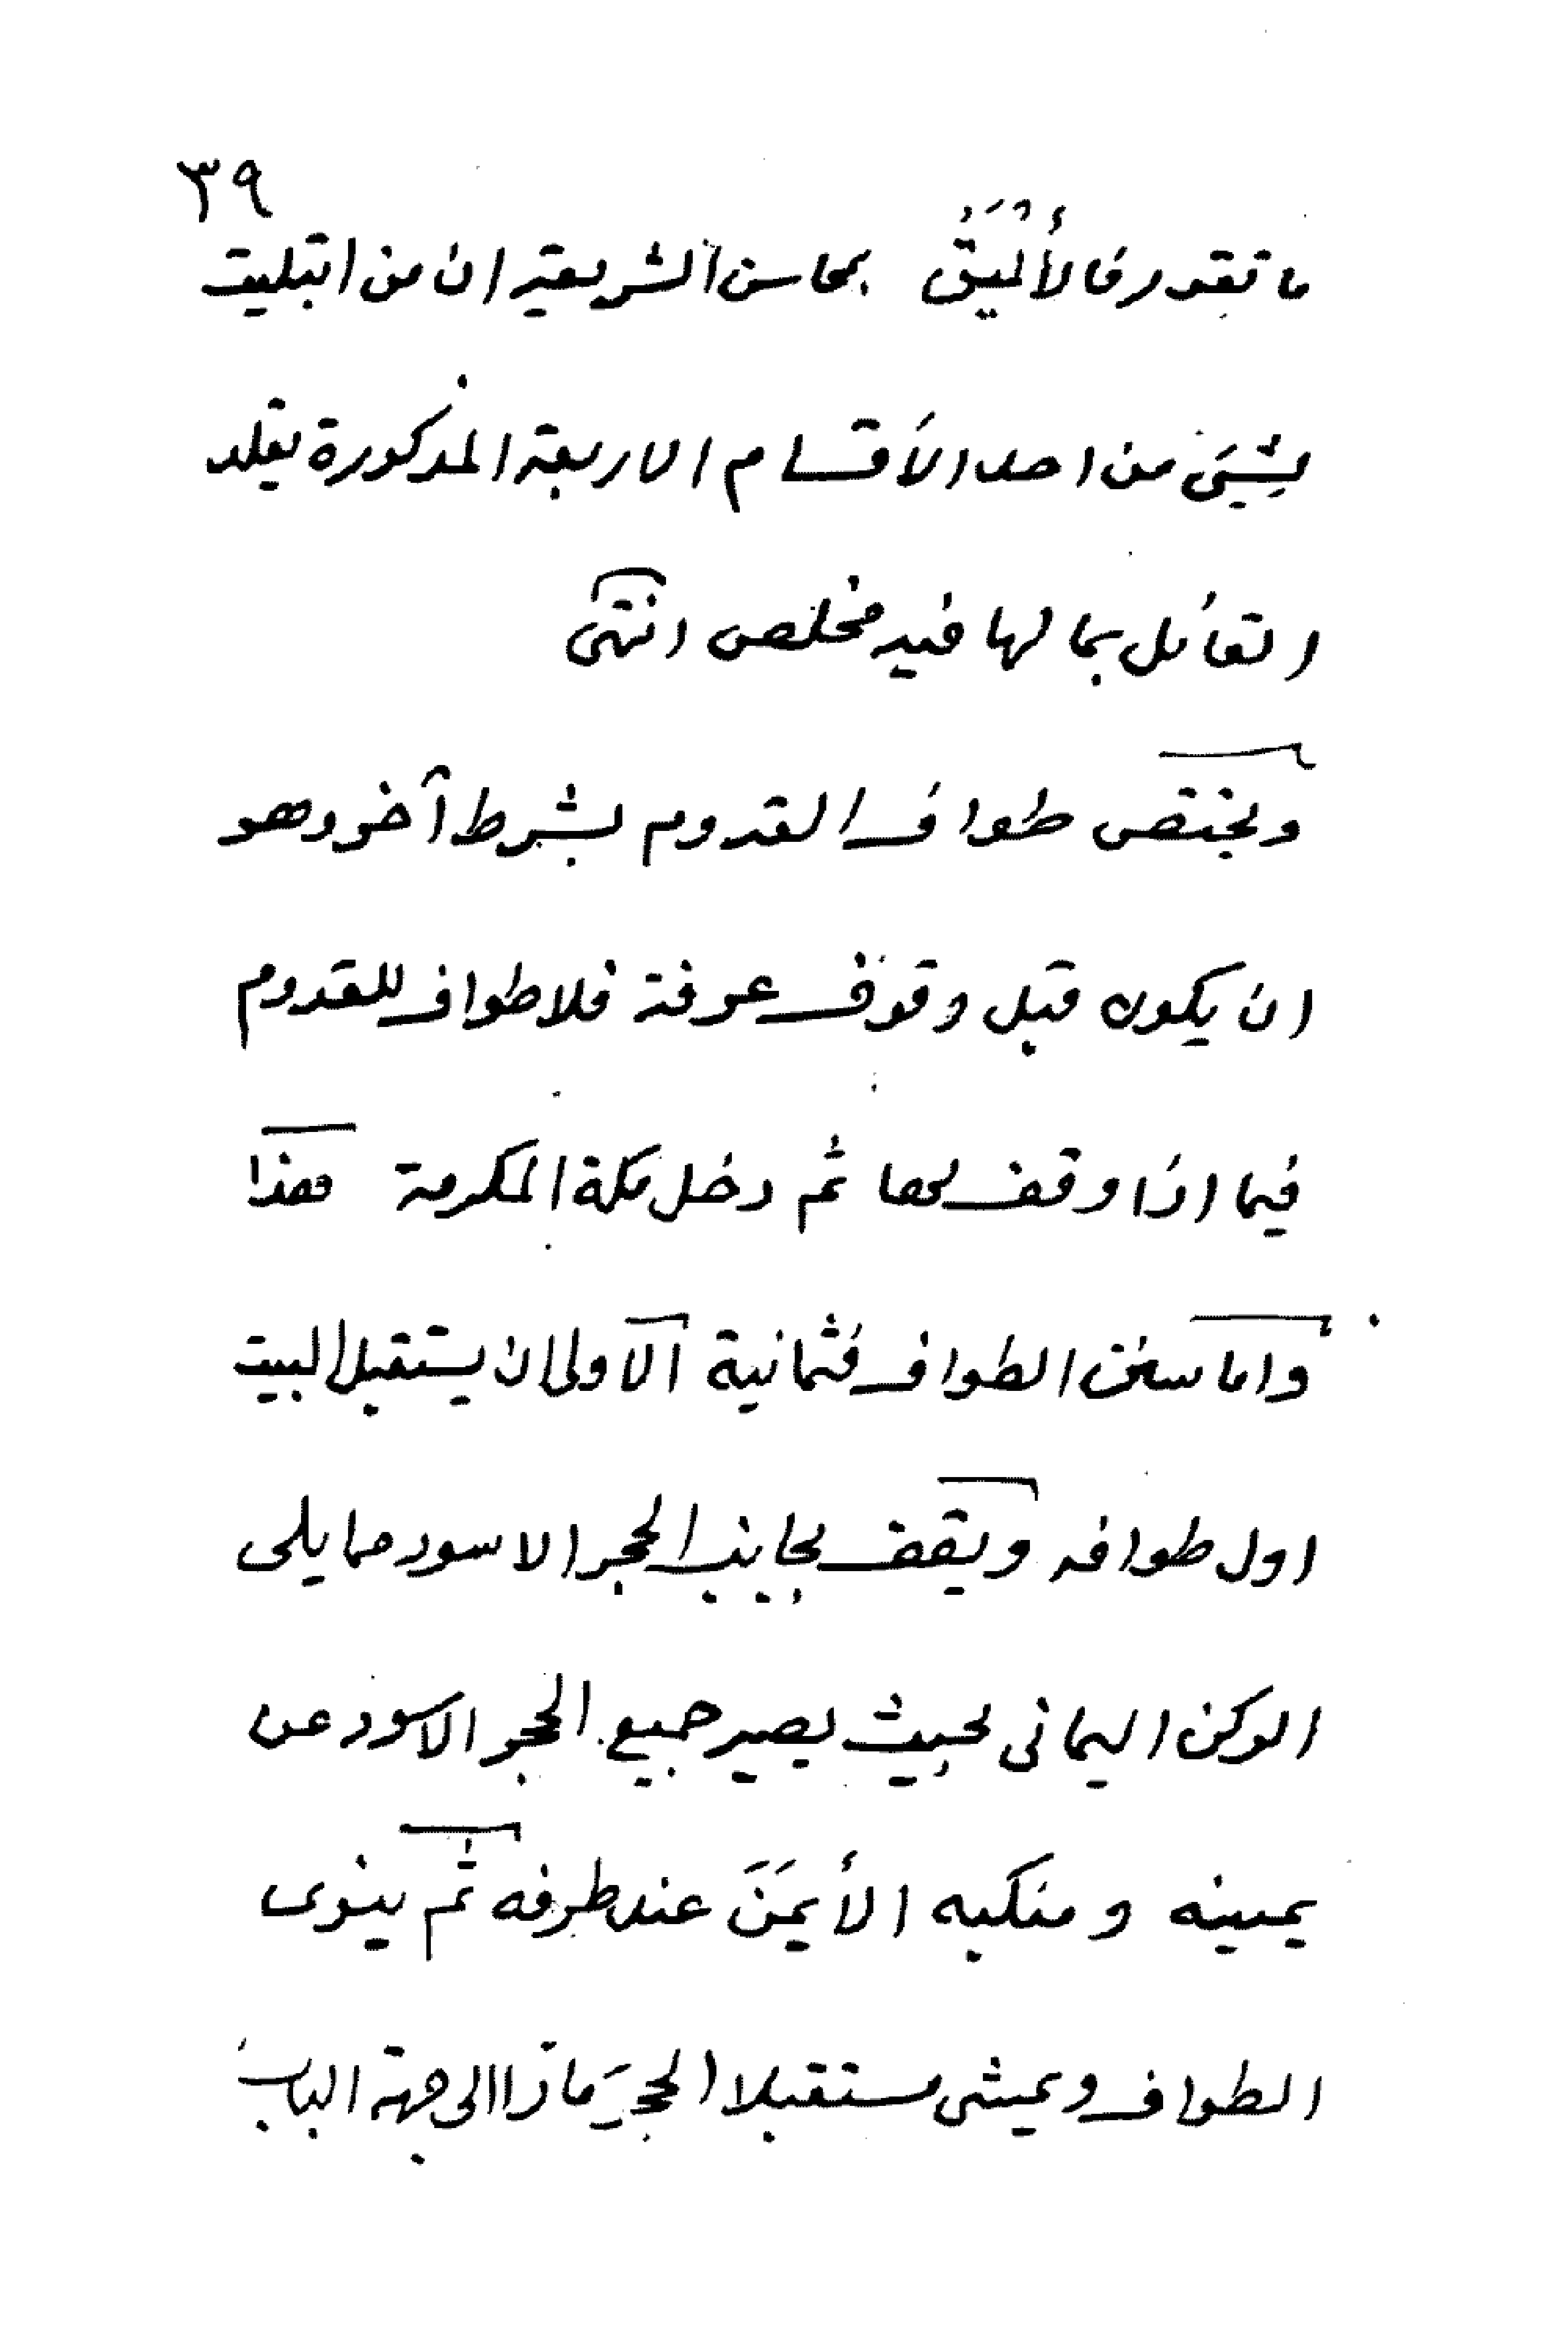 ٣٩
ما تقدر فالأَلْيَقُ بمحاسن الشريعة ان من ابتليت
بشيئ من احد الأقسام الاربعة المذكورة يقلد
القائل بما لها فيه مخلص انتهى
ويختص طواف القدوم بشرط آخر وهو
ان يكون قبل وقوف عرفة فلا طواف للقدوم
فيما اذا وقف بها ثم دخل مكة المكرمة هذا
واما سنن الطواف فثمانية الاولى ان يستقبل البيت
اول طوافه ويقف بجانب الحجر الاسود مما يلى
الركن اليمانى بحيث يصير جميع الحجر الاسود عن
يمينه ومنكبه الأيمَنَ عند طرفه ثم ينوى
الطواف ويمشى مستقبلا الحجرَ مارّا الى جهة الباب